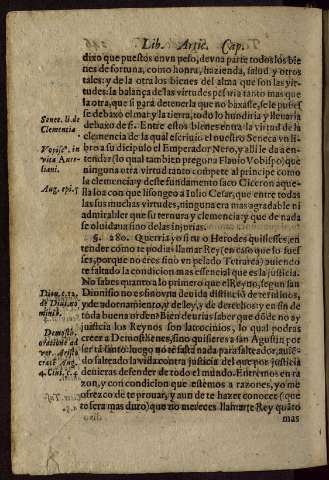 Lib. Artic. Cap.
dixo que puestos en vn peso, de vna parte todos los bie
nes de fortuna, como honra, hazienda, salud y otros
tales: y de la otra los bienes del alma que son las vir
tudes: la balança de las virtudes pesaria tanto mas que
la otra, que si para detenerla que no baxasse, se le pusiesse
debaxo el mar y la tierra, todo lo hundiria y lleuaria
Senec. li. de
Clementia
debaxo de si. Entre estos bienes entra la virtud de la
clemencia de la qual escriuio el nuestro Seneca vn li-
Vopisc. in
vita Aure-
liani.
bro a su dicipulo el Emperador Nero, y alli le da a en-
tender (lo qual tambien pregona Flauio Vobispo) que
ninguna otra virtud tanto compete al principe como
la clemencia y deste fundamento saco Ciceron aque-
lla loa con que lisongeo a Iulio Cesar, que entre todas
las sus muchas virtudes, ninguna era mas agradable ni
admirabler que su ternura y clemencia: y que de nada
se oluidaua sino de las injurias.
§. 280. Querria yo si tu o Herodes quisiesses, en
tender como te podrè llamar Rey (en caso que lo fues
ses, porque no eres sino vn pelado Tetrarca) auiendo
te faltado la condicion mas essencial que es la justicia.
No sabes quanto a lo primero que el Reyno, segun san
Dionisio no es sino vna deuida distinció de terminos,
y de hordenamiento, y de ley, y de derechos y en fin de
toda buena orden? Bien deurias saber que dóde no ay
Demosth.
justicia los Reynos son latrocinios, lo qual podras
creer a Demosthenes, sino quisieres a san Agustin por
ser tá santo: luego no te falta nada para salteador, auié-
4. Ciui. c. 4
do salteado la vida contra justicia del que por justicia
deuieras defender de todo el mundo. Entremos en ra
zon, y con condicion que estèmos a razones, yo me
ofrezco de te prouar, y aun de te hazer conocer (que
te sera mas duro) que no mereces llamarte Rey quáto
mas